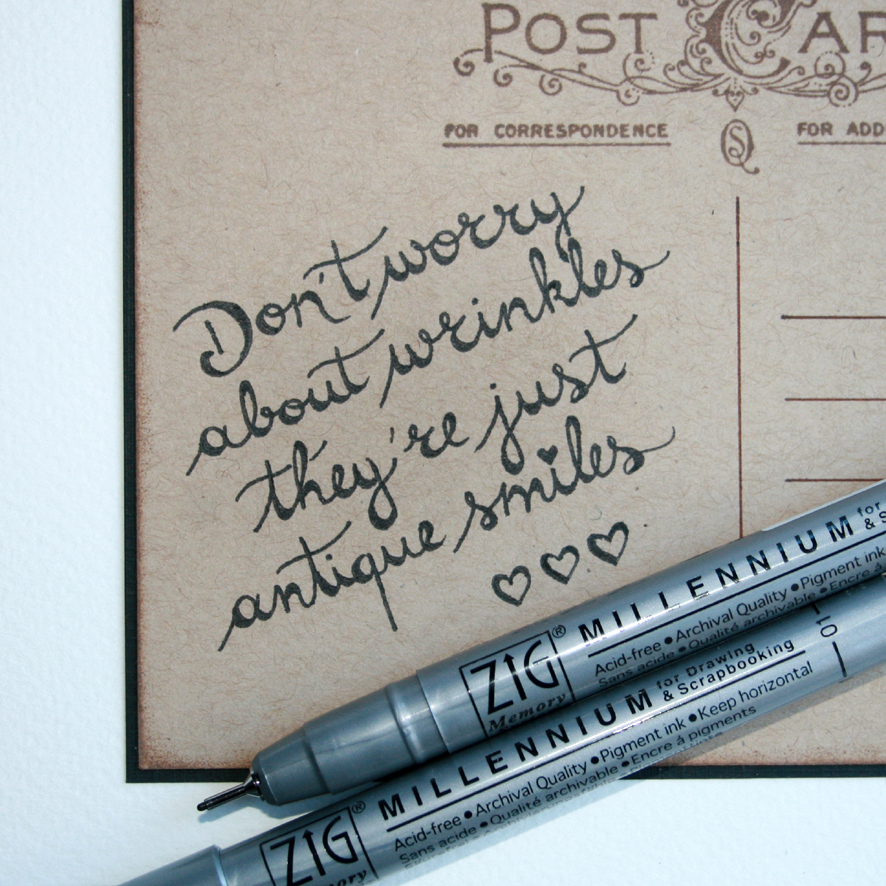 POST CAR
FOR CORRESPONDENCE
FOR ADD
Don't worry
about wrinkles
they're just
antique smiles
ZIG®
Memory
MILLENNIUM for
& S
Acid-free • Archival Quality • Pigment ink
Sans acide • Qualité archivable • Encre à
01
ZIG®
MILLENNIUM for Drawing
& Scrapbooking
Acid-free • Archival Quality • Pigment ink • Keep horizontal
Sans acide • Qualité archivable • Encre à pigments